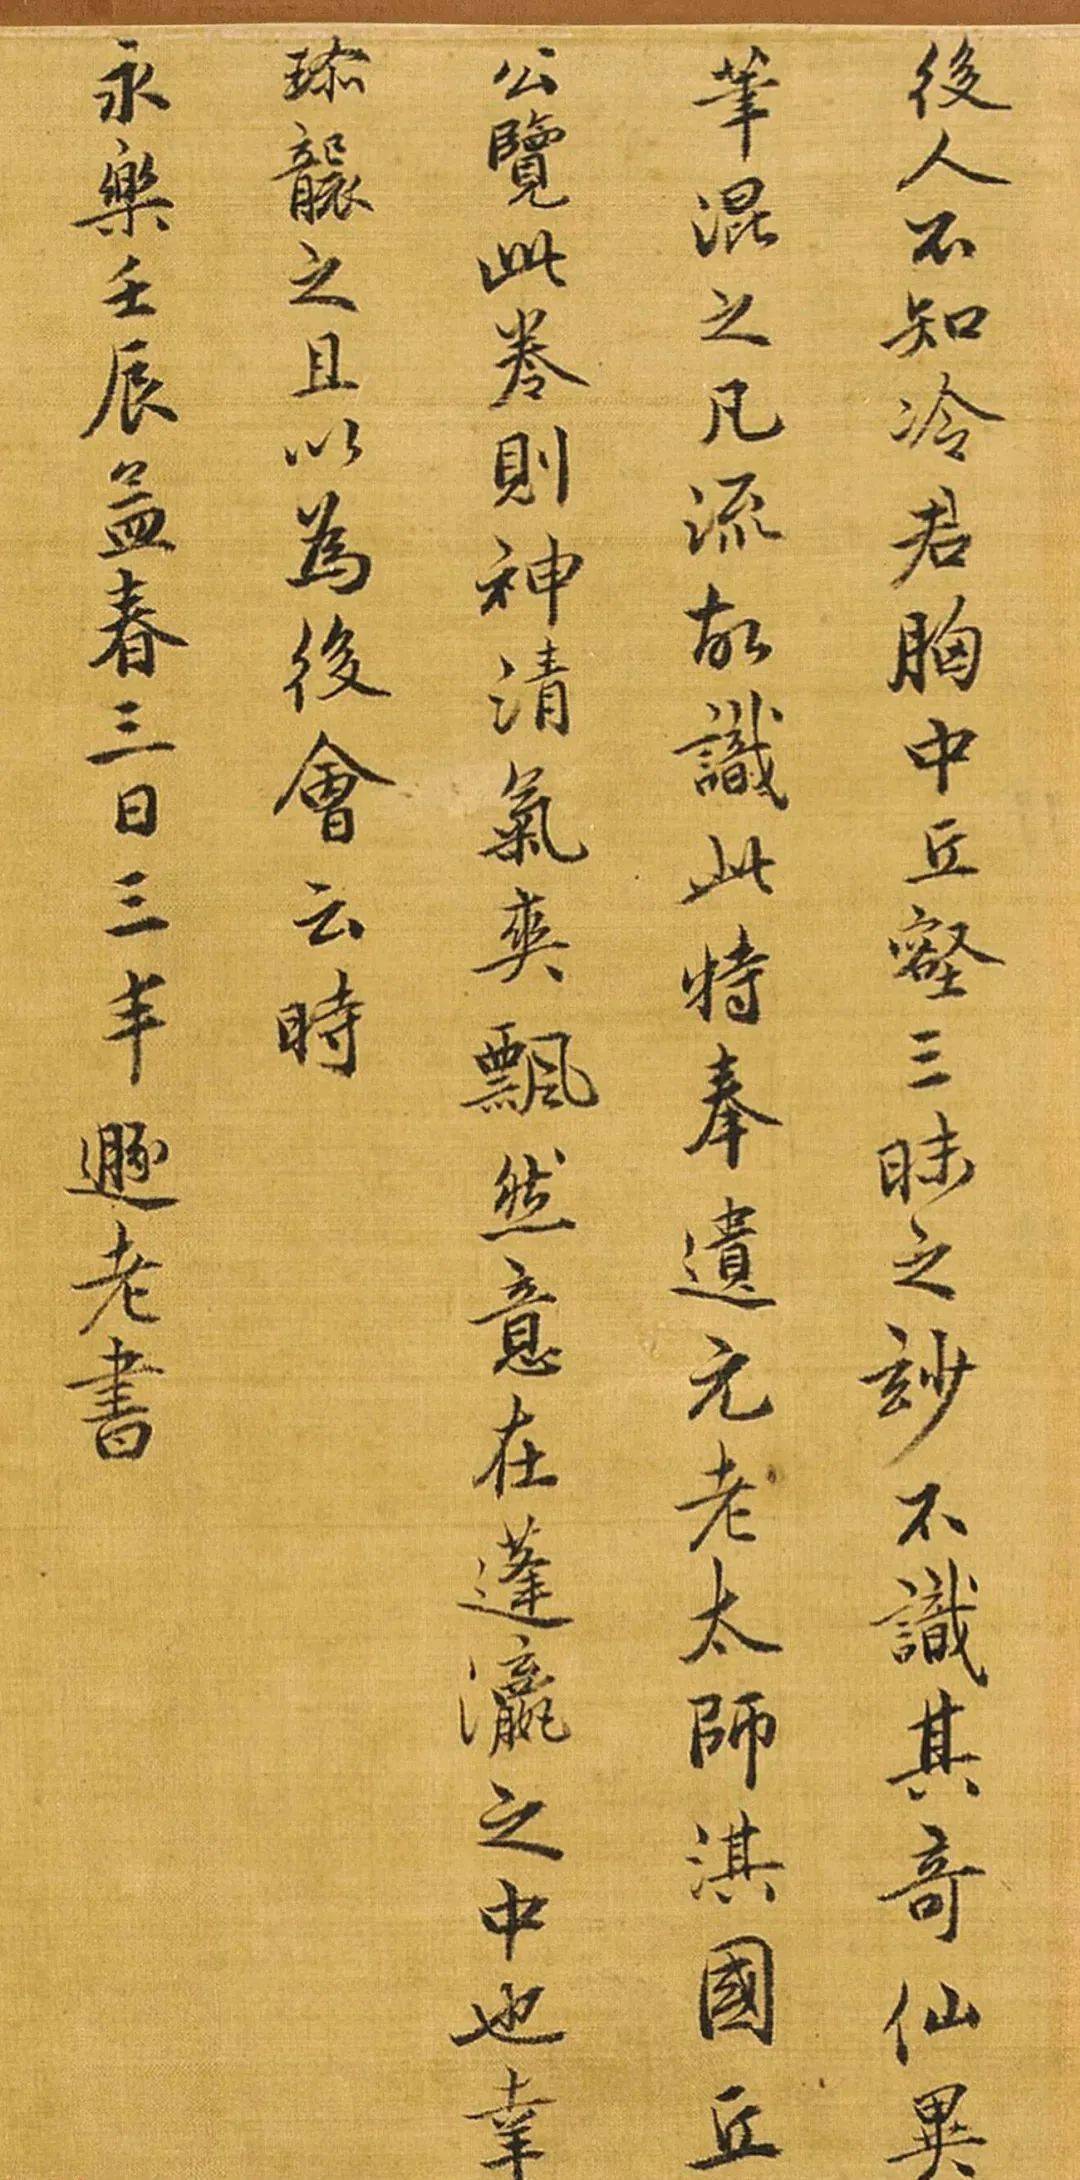 後人不知冷君胸中丘壑三昧之妙不識其奇仙異
筆混之凡流故識此特奉遺元老太師淇國丘
公覽此卷則神清氣爽飄然意在蓬瀛之中也幸
珎襲之且以為後會云時
永樂壬辰孟春三日三丰遯老書